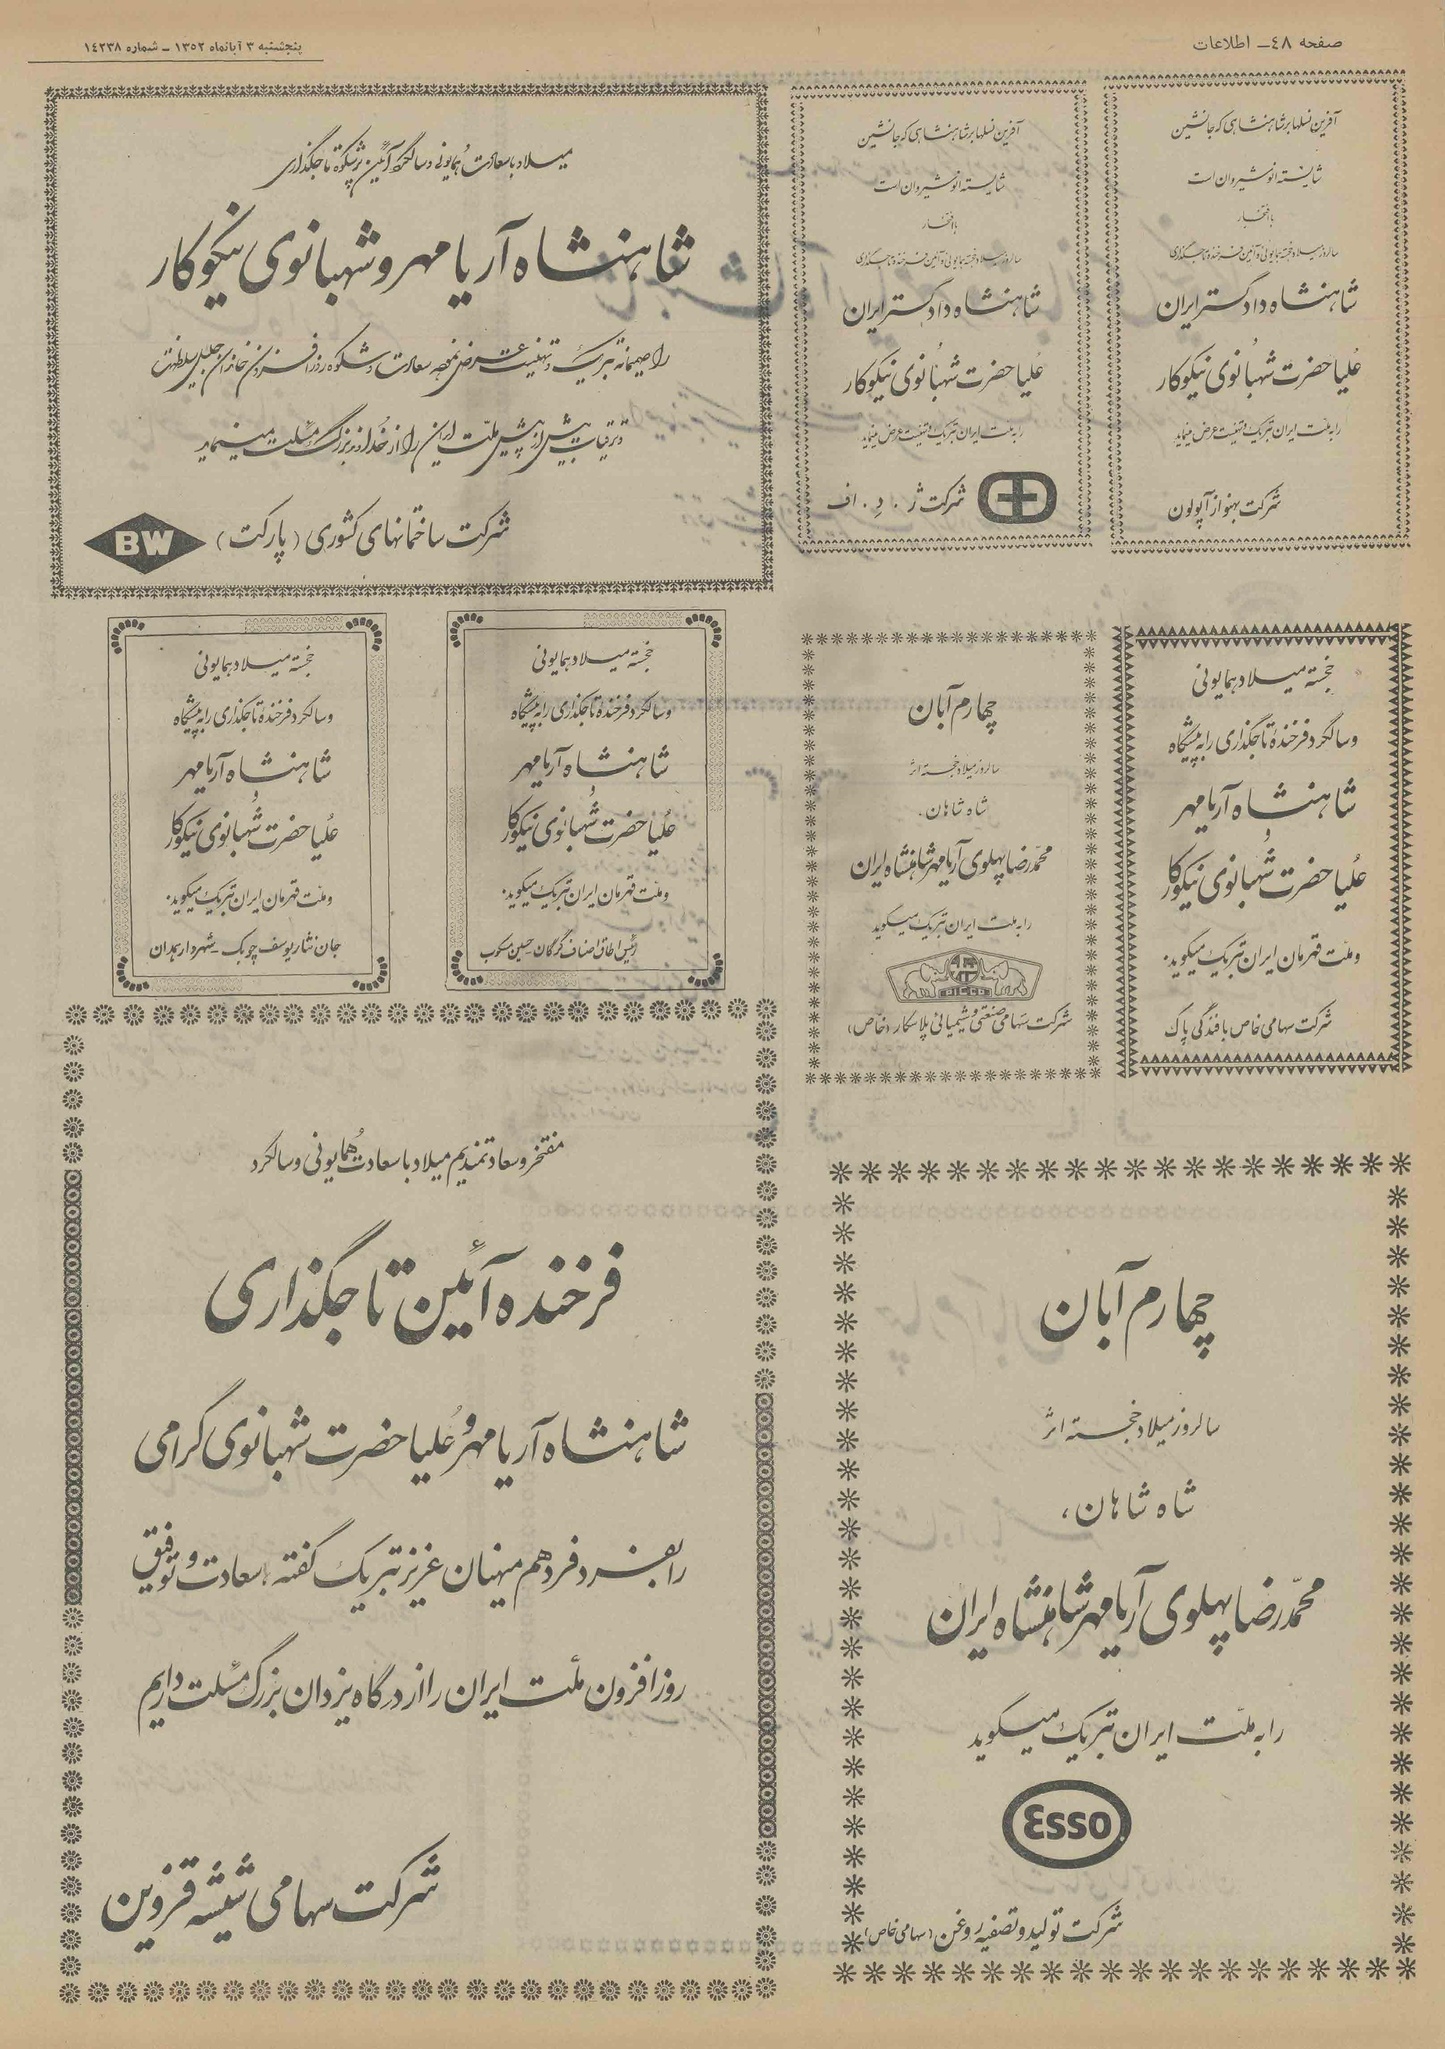 صفحه ٤٨ـ اطلاعات
پنجشنبه ۳ آبانماه ۱۳۵۲ ـ شماره ۱٤۲۳۸
آفرین نسلها بر شاهنشاهی که جانشین
شایسته انوشیروان است
با افتخار
سالروز میلاد خجسته همایونی و آئین فرخنده تاجگذاری
شاهنشاه دادگستر ایران
علیاحضرت شهبانوی نیکوکار
را به ملت ایران تبریک و تهنیت عرض مینماید
شرکت بهنواز آپولون
آفرین نسلها بر شاهنشاهی که جانشین
شایسته انوشیروان است
با افتخار
سالروز میلاد خجسته همایونی و آئین فرخنده تاجگذاری
شاهنشاه دادگستر ایران
علیاحضرت شهبانوی نیکوکار
را به ملت ایران تبریک و تهنیت عرض مینماید
شرکت ژ . د . اف
میلاد با سعادت همایونی و سالگرد آئین پرشکوه تاجگذاری
شاهنشاه آریامهر و شهبانوی نیکوکار
را صمیمانه تبریک و تهنیت عرض نموده سعادت و شکوه روزافزون خاندان جلیل سلطنت
و ترقیات بیش از پیش ملت ایران را از خداوند بزرگ مسئلت مینماید
شرکت ساختمانهای کشوری (پارکت)
BW
خجسته میلاد همایونی
و سالگرد فرخنده تاجگذاری را به پیشگاه
شاهنشاه آریامهر
و
علیاحضرت شهبانوی نیکوکار
و ملت قهرمان ایران تبریک میگوید.
شرکت سهامی خاص بافندگی پاک
چهارم آبان
سالروز میلاد خجسته اثر
شاه شاهان،
محمدرضا پهلوی آریامهر شاهنشاه ایران
را به ملت ایران تبریک میگوید
PICCO
شرکت سهامی صنعتی و شیمیائی پلاسکار (خاص)
خجسته میلاد همایونی
و سالگرد فرخنده تاجگذاری را به پیشگاه
شاهنشاه آریامهر
و
علیاحضرت شهبانوی نیکوکار
و ملت قهرمان ایران تبریک میگوید.
رئیس اطاق اصناف گرگان ـ حسین
خجسته میلاد همایونی
و سالگرد فرخنده تاجگذاری را به پیشگاه
شاهنشاه آریامهر
و
علیاحضرت شهبانوی نیکوکار
و ملت قهرمان ایران تبریک میگوید.
جان نثار یوسف چوبک ـ شهردار همدان
چهارم آبان
سالروز میلاد خجسته اثر
شاه شاهان،
محمدرضا پهلوی آریامهر شاهنشاه ایران
را به ملت ایران تبریک میگوید
Esso
شرکت تولید و تصفیه روغن (سهامی خاص)
مفتخر و سعادتمندیم میلاد با سعادت همایونی و سالگرد
فرخنده آئین تاجگذاری
شاهنشاه آریامهر و علیاحضرت شهبانوی گرامی
را بفرد فرد هم میهنان عزیز تبریک گفته، سعادت و توفیق
روزافزون ملت ایران را از درگاه یزدان بزرگ مسئلت داریم
شرکت سهامی شیشه قزوین